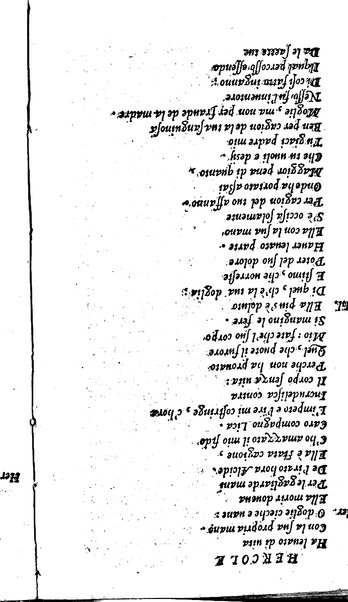 HERCOLE
Ha leuato di uita
Con la sua propria mano.
O doglie cieche e uane:
Ella morir doueua
Per le gagliarde mani
De l'irato hora Alcide.
Ella è stata cagione,
C'ho amazzato il mio fido
Caro compagno Lica.
L'impeto e l'ire mi costringe, c'hora
Incrudelisca contra
Il corpo senza uita:
Perche non ha prouato
Quel, che puote il furore
Mio: fate che'l suo corpo
Si mangino le fere.
Ella piu s'è doluta
Di quel, ch'è la tua doglia:
E stimo, che uorreste
Poter del suo dolore
Hauer leuato parte.
Ella con la sua mano
S'è occisa solamente
Per cagion del tuo affanno.
Onde ha portato assai
Maggior pena di quanto,
Che tu uuoli e desij.
Tu giaci padre mio
Ben per cagion de la tua sanguinosa
Moglie, ma non per frande de la madre.
Nesso fu l'inuentore
Di cosi fatto inganno:
Il qual percosso essendo
Da le saette tue
Her